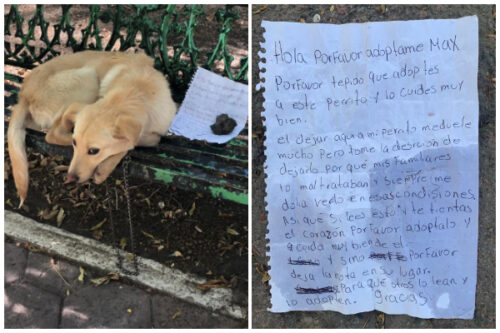 Hola Porfavor adoptame MAX
Porfavor tepido que adoptes
a este perrito y lo cuides muy
bien.
el dejar aqui a mi perrito me duele
mucho pero tome la decision de
dejarlo porque mis familiares
lo maltrataban y siempre me
dolia verlo en esas condisiones.
Asi que si lees esto y te tientas
el corazon Porfavor adoptalo y
cuida muy bien de el
y sino Porfavor
deja la nota en su lugar.
Para que otros lo lean y
lo adopten. Gracias